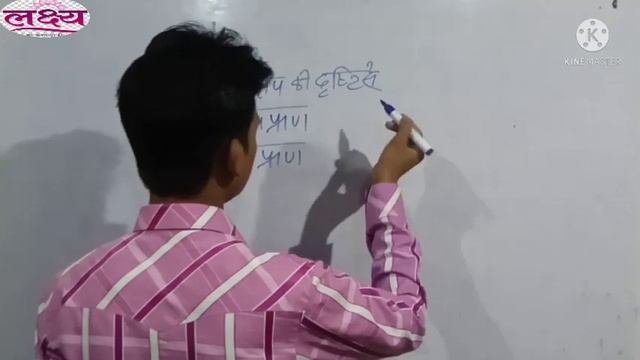 लक्ष्य
KINEMASTER
की दृष्टि से
प्राण
प्राण